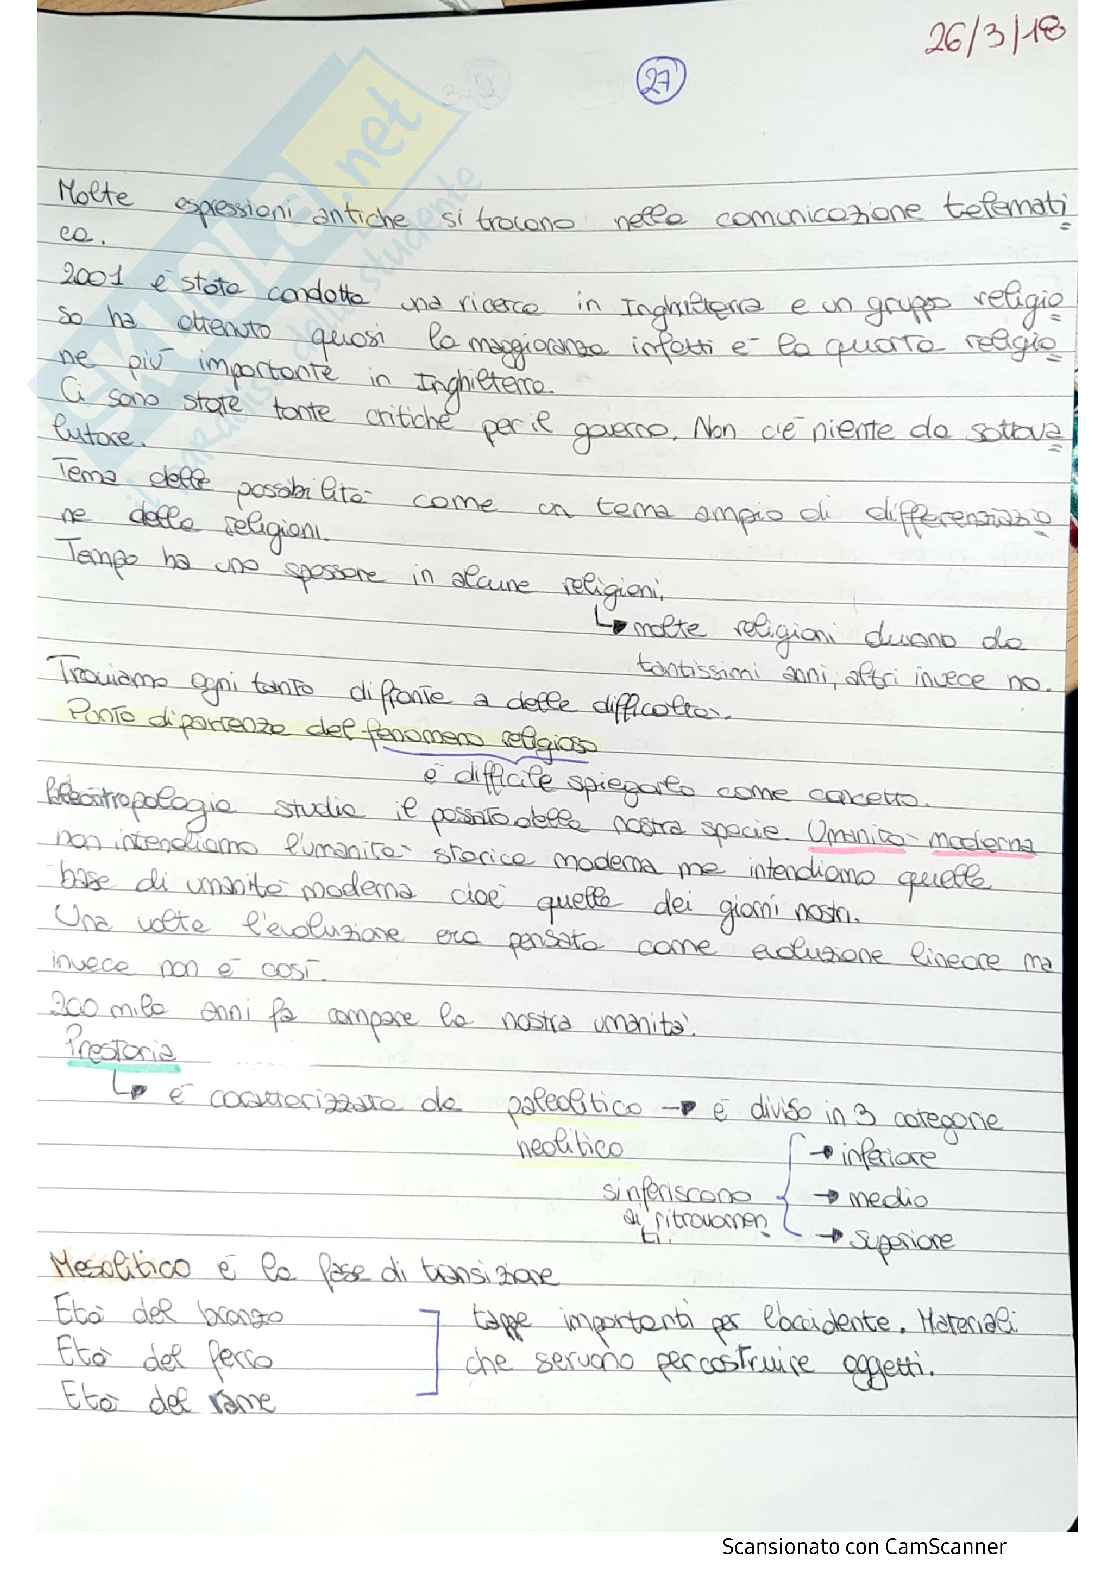 26/3/18
27
Molte espressioni antiche si trovano nella comunicazione telemati
ca.
2001 è stata condotta una ricerca in Inghilterra e un gruppo religio
so ha ottenuto quasi la maggioranza infatti è la quarta religio
ne più importante in Inghilterra.
Ci sono state tante critiche per il governo. Non c'è niente da sottova
lutare.
Tema delle possibilità come un tema ampio di differenziazio
ne delle religioni.
Tempo ha uno spessore in alcune religioni.
↳ molte religioni durano da
tantissimi anni, altri invece no.
Troviamo ogni tanto di fronte a delle difficoltà.
Punto di partenza del fenomeno religioso
è difficile spiegarlo come concetto.
studia il passato della nostra specie. Umanità moderna
non intendiamo l'umanità storica moderna ma intendiamo quella
base di umanità moderna cioè quella dei giorni nostri.
Una volta l'evoluzione era pensata come evoluzione lineare ma
invece non è così.
200 mila anni fa compare la nostra umanità.
Preistoria
↳ è caratterizzata da paleolitico → è diviso in 3 categorie
neolitico → inferiore
si riferiscono → medio
ai ritrovamen
ti. → superiore
Mesolitico è la fase di transizione
Età del bronzo tappe importanti per l'occidente. Materiali
Età del ferro che servono per costruire oggetti.
Età del rame
SKUOLA.net
Scansionato con CamScanner